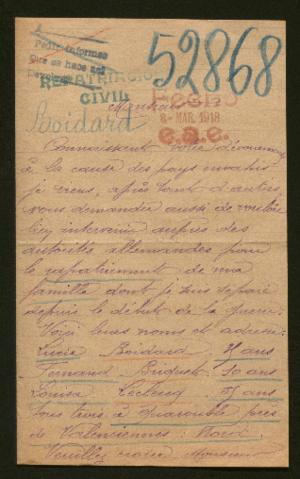 Pedir informes
que se hace así
52868
REPATRIACIÓN
CIVIL
Fecho
8- MAR. 1918
e.a.e.
Boidard
Monsieur
Connaissant votre dévouement
à la cause des pays envahis
je viens, après tant d'autres
vous demander aussi de vouloir
bien intervenir auprès des
autorités allemandes pour
le rapatriement de ma
famille dont je suis séparé
depuis le début de la guerre.
Voici leurs noms et adresse:
Lucie Boidard ans
Fernand Buduet 10 ans
Louisa Leclercq ans
Tous trois à Quarouble près
de Valenciennes: Nord.
Veuillez croire Monsieur